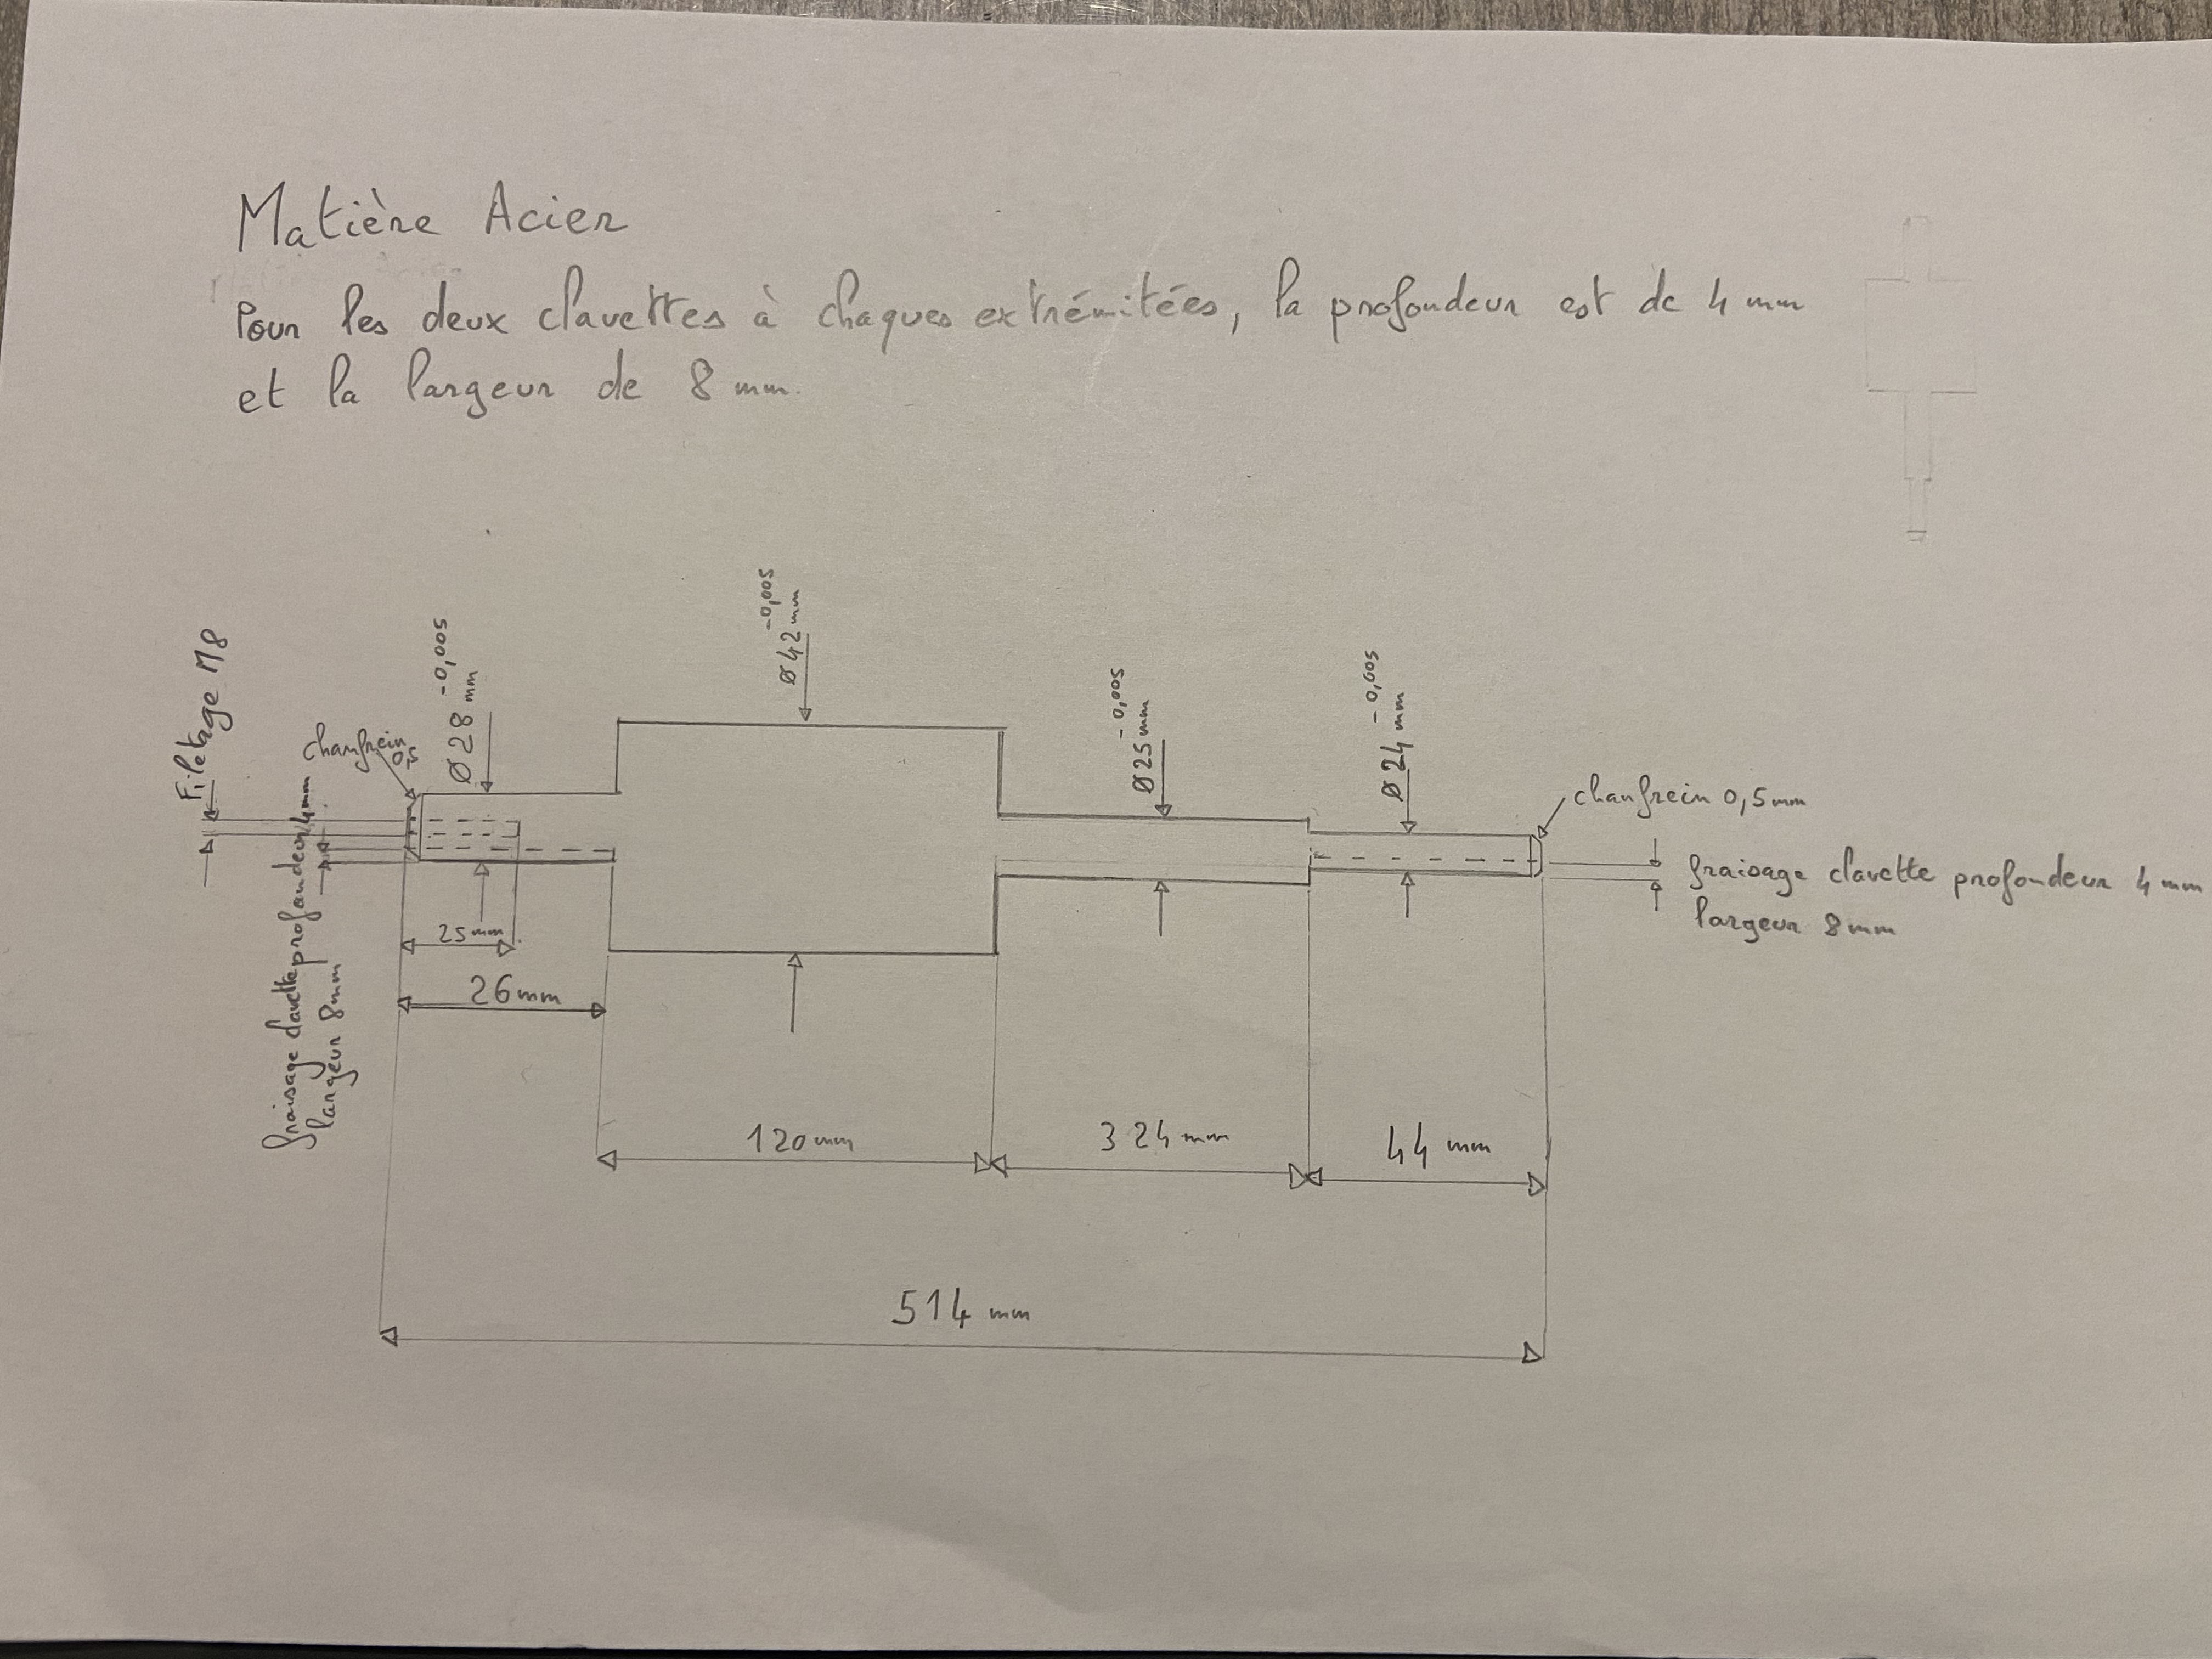 Matière Acier
Pour les deux clavettes à chaques extrémitées, la profondeur est de 4 mm
et la largeur de 8 mm.
Filetage M8
chanfrein
0,5
Ø 28 -0,005 mm
Ø 42 -0,005 mm
Ø 25 -0,005 mm
Ø 24 -0,005 mm
chanfrein 0,5 mm
fraisage clavette profondeur 4 mm
largeur 8 mm
fraisage clavette profondeur 4 mm
largeur 8 mm
25 mm
26 mm
120 mm
324 mm
44 mm
514 mm